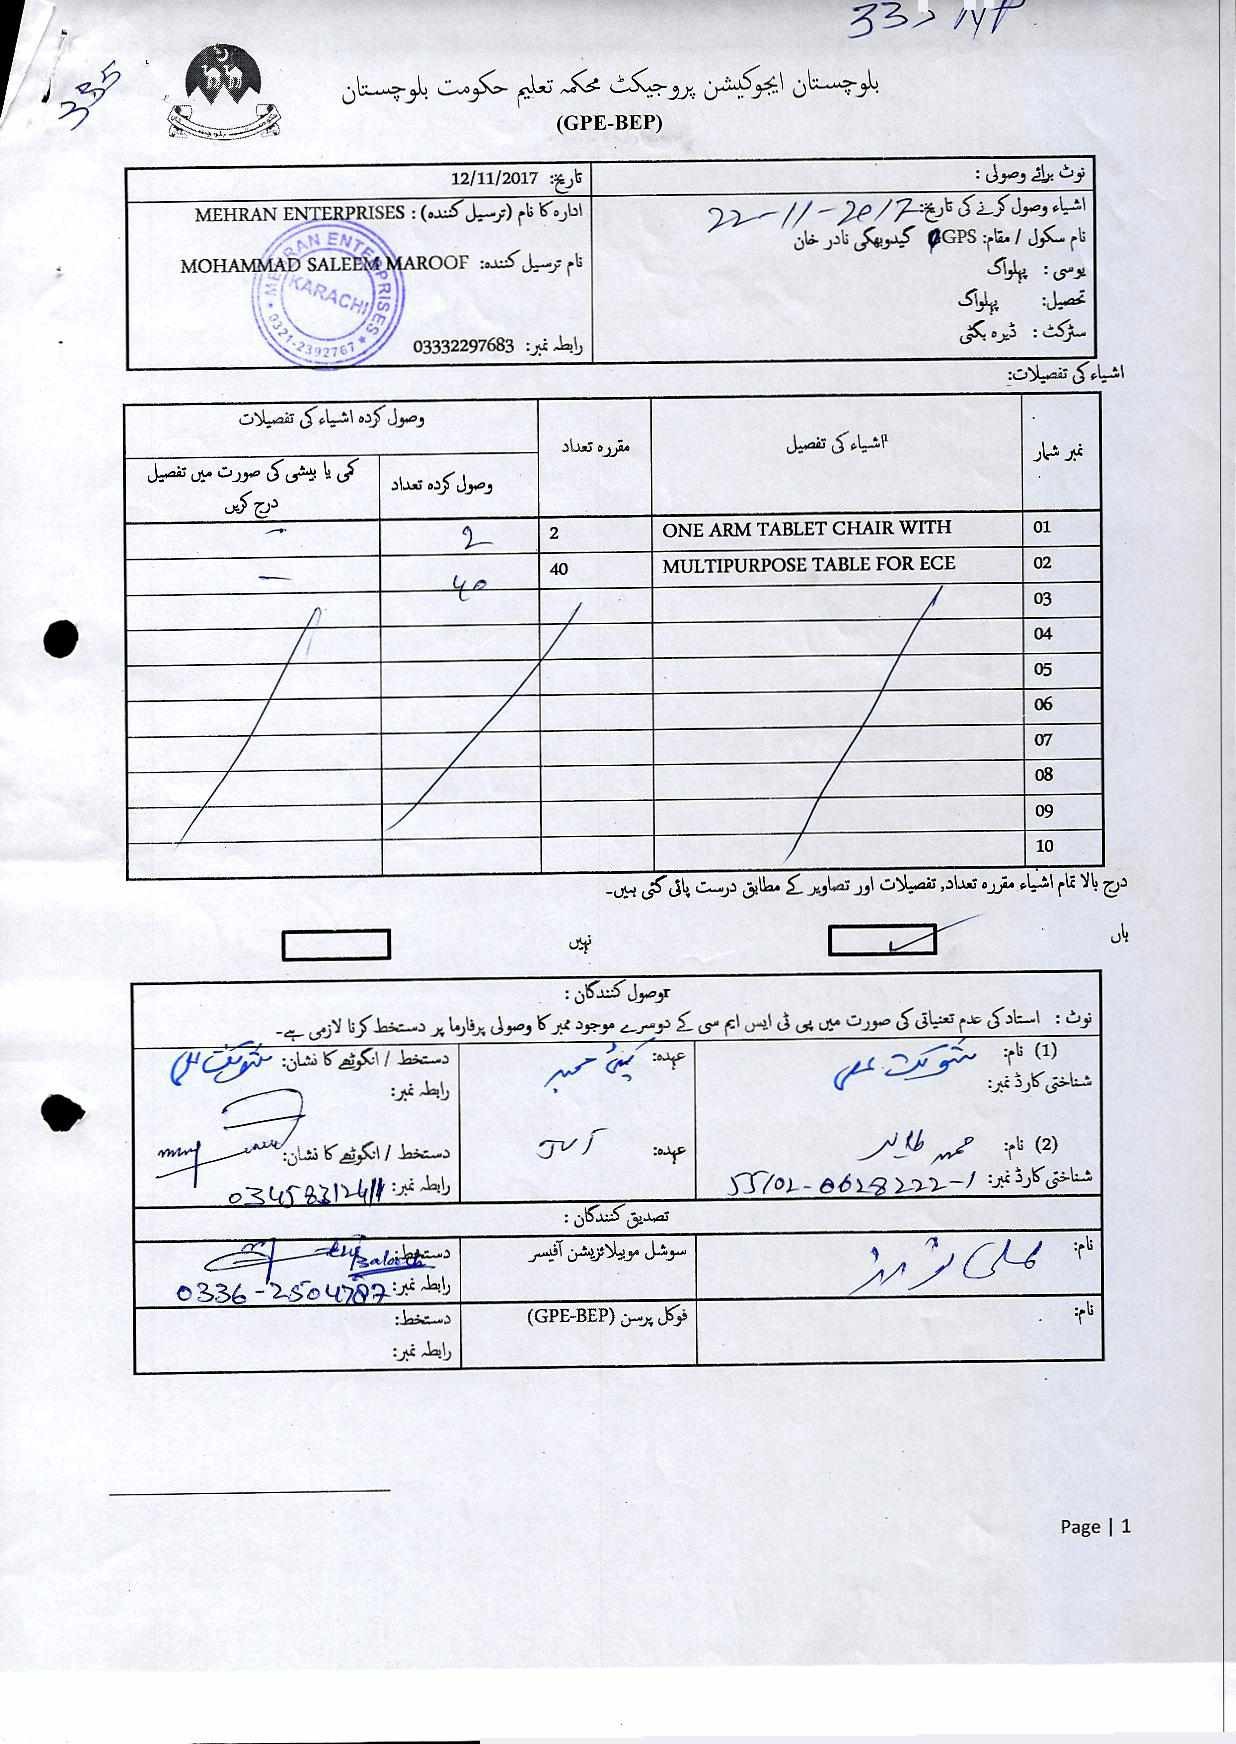 335
بلوچستان ایجوکیشن پروجیکٹ محکمہ تعلیم حکومت بلوچستان
(GPE-BEP)
نوٹ برائے وصولی :
اشیاء وصول کرنے کی تاریخ: 22-11-2017
نام سکول / مقام: GGPS گیدوبھکی نادر خان
یوسی : پہلواگ
تحصیل: پہلواگ
سٹرکٹ : ڈیرہ بگٹی
تاریخ: 12/11/2017
ادارہ کا نام (ترسیل کنندہ) : MEHRAN ENTERPRISES
نام ترسیل کنندہ: MOHAMMAD SALEEM MAROOF
رابطہ نمبر: 03332297683
MEHRAN ENTERPRISES
KARACHI
0321-2392767
اشیاء کی تفصیلات:
نمبر شمار اشیاء کی تفصیل مقررہ تعداد وصول کردہ اشیاء کی تفصیلات
وصول کردہ تعداد کمی یا بیشی کی صورت میں تفصیل درج کریں
01 ONE ARM TABLET CHAIR WITH 2 2 -
02 MULTIPURPOSE TABLE FOR ECE 40 40 -
03
04
05
06
07
08
09
10
درج بالا تمام اشیاء مقررہ تعداد, تفصیلات اور تصاویر کے مطابق درست پائی گئی ہیں۔
ہاں نہیں
وصول کنندگان :
نوٹ : استاد کی عدم تعنیاتی کی صورت میں پی ٹی ایس ایم سی کے دوسرے موجود ممبر کا وصولی پرفارما پر دستخط کرنا لازمی ہے۔
(1) نام: شوکت علی عہدہ: دستخط / انگوٹھے کا نشان: شوکت علی
شناختی کارڈ نمبر: رابطہ نمبر:
(2) نام: عہدہ: JVT دستخط / انگوٹھے کا نشان:
شناختی کارڈ نمبر: 55102-0628222-1 رابطہ نمبر: 03458312411
تصدیق کنندگان :
نام: سوشل موبیلائزیشن آفیسر دستخط: Baloch
رابطہ نمبر: 0336-2504787
نام: فوکل پرسن (GPE-BEP) دستخط:
رابطہ نمبر:
Page | 1